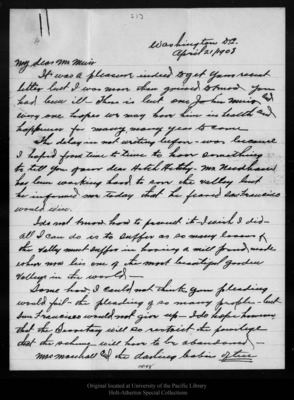 Washington D.C.
April 21/1908
My dear Mr Muir
It was a pleasure indeed to get your recent
letter but I was more than grieved to know you
had been ill - There is but one John Muir and
every one hopes we may have him in health and
happiness for many many years to come.
The delay in not writing before - was because
I hoped from time to time to hear something
to tell you of your dear Hetch Hetchy - Mr Needham
has been working hard to save the valley but
he informed me today that he feared San Francisco
would win.
I do not know how to prevent it - I wish I did -
all I can do is to suffer as so many lovers of
the valley must suffer in having a mill pond made
where now lies one of the most beautiful garden
valleys in the world -
Some how, I could not think your pleading
would fail - the pleading of so many people - but
San Francisco would not give up - I do hope however
that the Secretary will so restrict the privilege
that the scheme will have to be abandoned -
Mrs Marshall and the darling babies
Original located at University of the Pacific Library
Holt-Atherton Special Collections